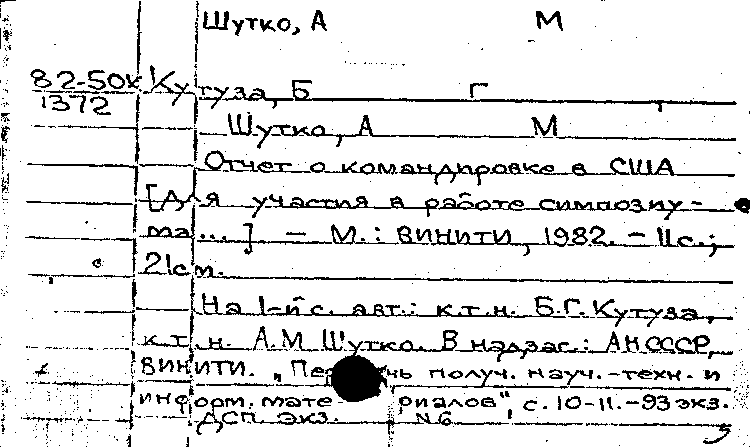 Шутко, А М
82-50к Кутуза, Б Г
1372
Шутко, А М
Отчет о командировке в США
[Для участия в работе симпозиу-
ма...]. - М.: ВИНИТИ, 1982. - 11с.;
21см.
На 1-й с. авт.: к.т.н. Б.Г. Кутуза,
к.т.н. А.М Шутко. В надзаг.: АН СССР,
ВИНИТИ. "Пе нь получ. науч.-техн. и
информ. мате риалов", с. 10-11. -93 экз.
ДСП. экз. N6